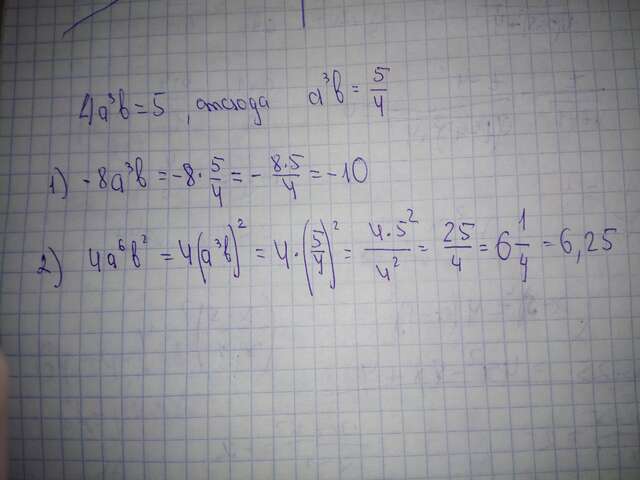 4a³b = 5 , отсюда a³b = 5/4
1) -8a³b = -8 · 5/4 = - 8·5/4 = -10
2) 4a⁶b² = 4(a³b)² = 4·(5/4)² = 4·5²/4² = 25/4 = 6 1/4 = 6,25